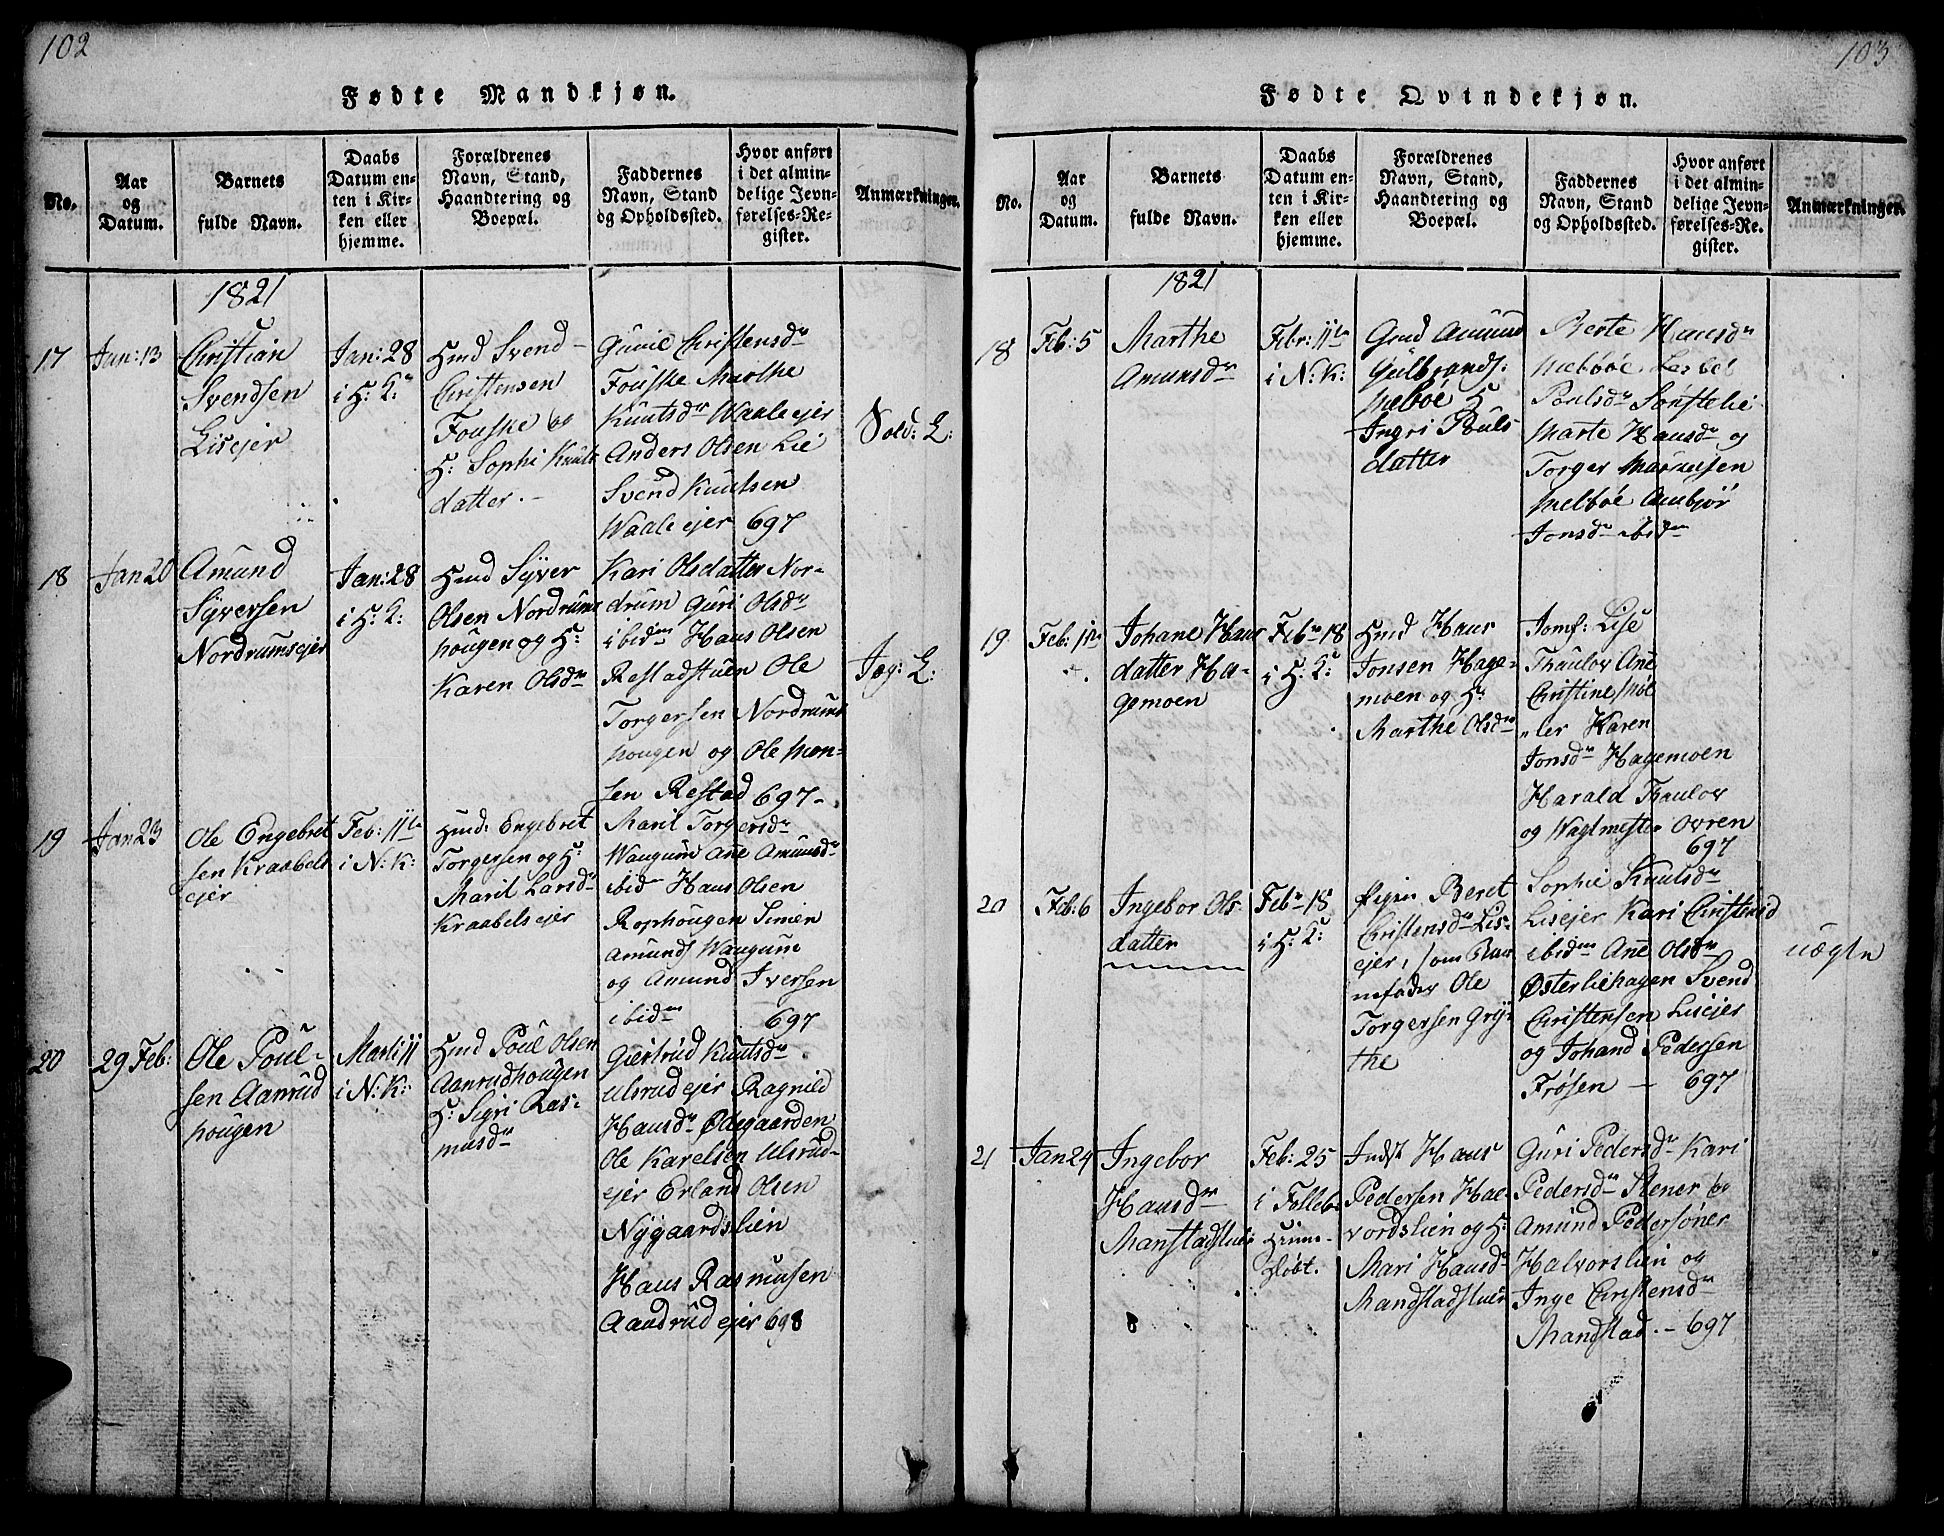 102
Fødte Mandkjøn.
No.
Aar
og
Datum.
Barnets
fulde Navn.
Daabs
Datum en-
ten i Kir-
ken eller
hjemme.
Forældrenes
Navn, Stand,
Haandtering og
Boepæl.
Faddernes
Navn, Stand
og Opholdssted.
Hvor anført
i det almin-
delige Jevn-
førelses-Re-
gister.
Anmærkninger.
1821
17
Jan: 13
Christian
Svendsen
Lisejer
Jan: 28
i H: K:
Hmd Svend
Christensen
Fouske og
H: Sophi Knuts
datter.
Gunil Christensdr
Fouske Marthe
Knutsdr Waaleejer
Anders Olsen Lie
Svend Knutsen
Waaleejer 697
Sold: L:
18
Jan 20
Amund
Syversen
Nordrumsejer
Jan: 28
i H: K:
Hmd Syver
Olsen Nordrums
hougen og H:
Karen Olsdr
Kari Olsdatter Nor-
drum Guri Olsdr
ibidm Hans Olsen
Restadstuen Ole
Torgersen Nordrums
hougen og Ole Mon-
sen Restad 697
Jæg: L:
19
Jan 23
Ole Engebret
sen Kraabels
ejer
Feb: 11te
i N: K:
Hmd: Engebret
Torgersen og H:
Marit Larsdr
Kraabelsejer
Marit Torgersdr
Waugum Ane Amundsdr
ibid Hans Olsen
Rophougen Simen
Amunds Waugum
og Amund Iversen
ibidm 697
20
29 Feb:
Ole Poul-
sen Aanrud
hougen
Marti 11
i N: K:
Hmd Poul Olsen
Aanrudhougen
H: Sigri Ras-
musdr
Giertrud Knutsdr
Ulsrudejer Ragnild
Hansdr Ødegaarden
Ole Karelsen Ulsrud-
ejer Erland Olsen
Nygaardslien
Hans Rasmusen
Aandrudejer 698
103
Fødte Qvindekjøn.
No.
Aar
og
Datum.
Barnets
fulde Navn.
Daabs
Datum en-
ten i Kir-
ken eller
hjemme.
Forældrenes
Navn, Stand,
Haandtering og
Boepæl.
Faddernes
Navn, Stand
og Opholdssted.
Hvor anført
i det almin-
delige Jevn-
førelses-Re-
gister.
Anmærkninger.
1821
18
Feb: 5
Marthe
Amunsdr
Febr: 11te
i N: K:
Gmd Amund
Gulbrands:
Melbøe H
Ingri Pouls
datter
Berte Hansdr
Mebøe
Poulsdr Sønstelie
Marte Hansdr og
Torger
Melbøe Ambjør
Jonsdr ibidm
19
Feb:
Johane Hans
datter Ha-
gemoen
Febr 18
i H: K:
Hmd Hans
Jonsen Hage-
moen og H:
Marthe Olsdr
Jomf: Lise
Thaulov Ane
Christine Møl
ler Karen
Jonsdr Hagemoen
Harald Thaulov
og Wagtmester Ovren
697
20
Feb: 6
Ingebor Ols
datter
Febr 18
i H: K:
Pigen Beret
Christensdr Lis-
ejer, som Bar
nefader Ole
Torgersen Gry-
the
Sophie Knutsdr
Lisejer Kari Christensd
ibidm Ane Olsdr
Østerliehagen Svend
Christensen Lisejer
og Johand Pedersen
Frøsen — 697
uægte
21
Jan 24
Ingebor
Hansdr
Manstadstuen
Feb: 25
i Follebu
Hiem-
døbt.
Indst Hans
Pedersen Hal-
vordslien og H:
Mari Hansdr
Mandstadstuen
Guri Pedersdr Kari
Pedersdr Stener og
Amund Pedersøner
Halvorslien og
Inge Christensdr
Mandstad. — 697